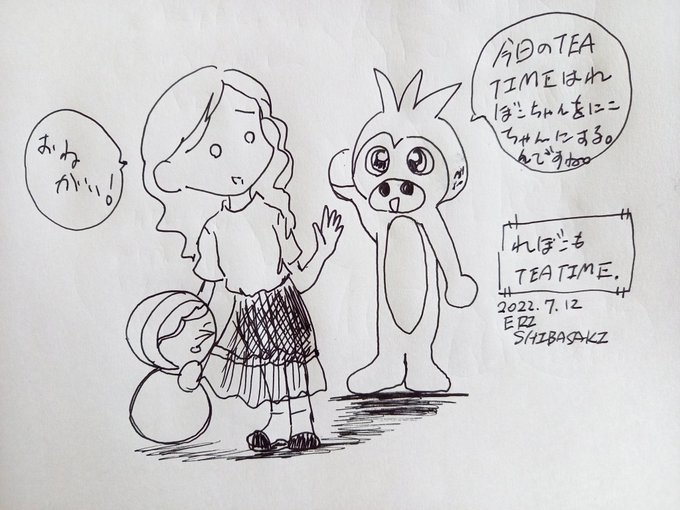 おね
がい!
今日のTEA
TIMEはれ
ぼこちゃんをにこ
ちゃんにする。
んですね。
れぼこも
TEATIME.
2022.7.12
ERI
SHIBASAKI